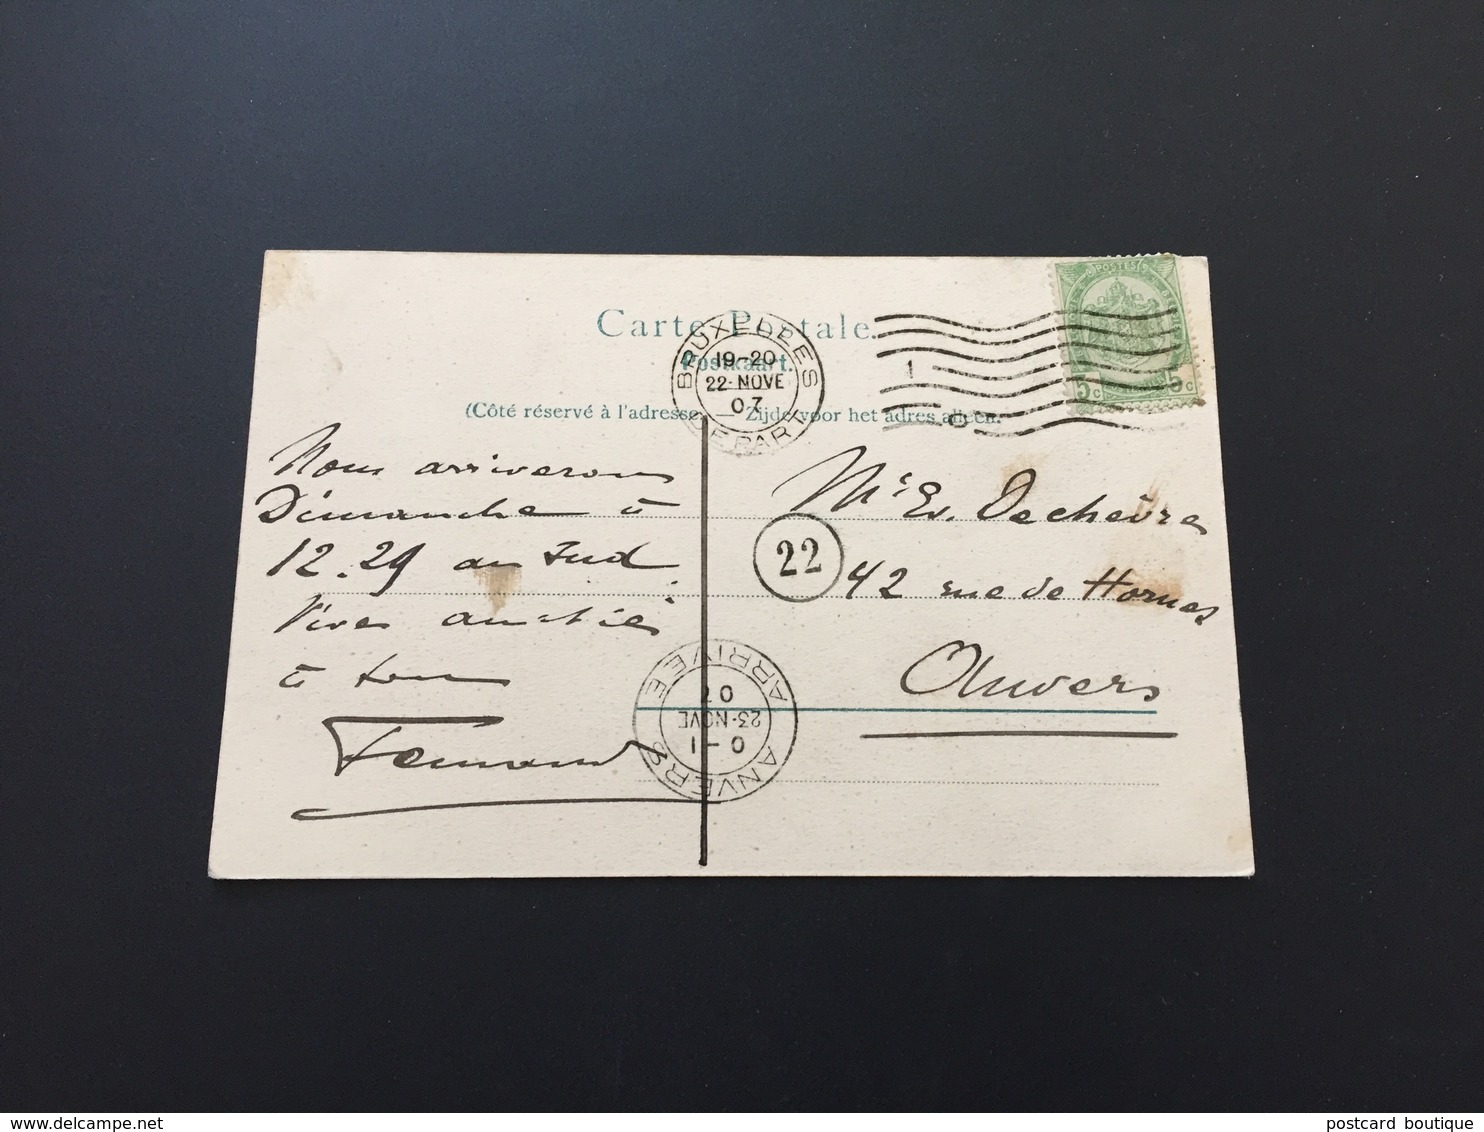 Carte Postale.
Postkaart.
(Côté réservé à l'adresse — Zijde voor het adres alleen.
BRUXELLES
19-20
22 NOVE
07
DEPART
POSTES
5c 5c
1
Nous arriverons
Dimanche à
12.29 au Sud
Vives amitiés
à tous
Fernand
Mr Ed. Dechèvre
42 rue de Hornes
Anvers
22
ANVERS
0-1
23-NOVE
07
ARRIVEE
delcampe.net
postcard boutique